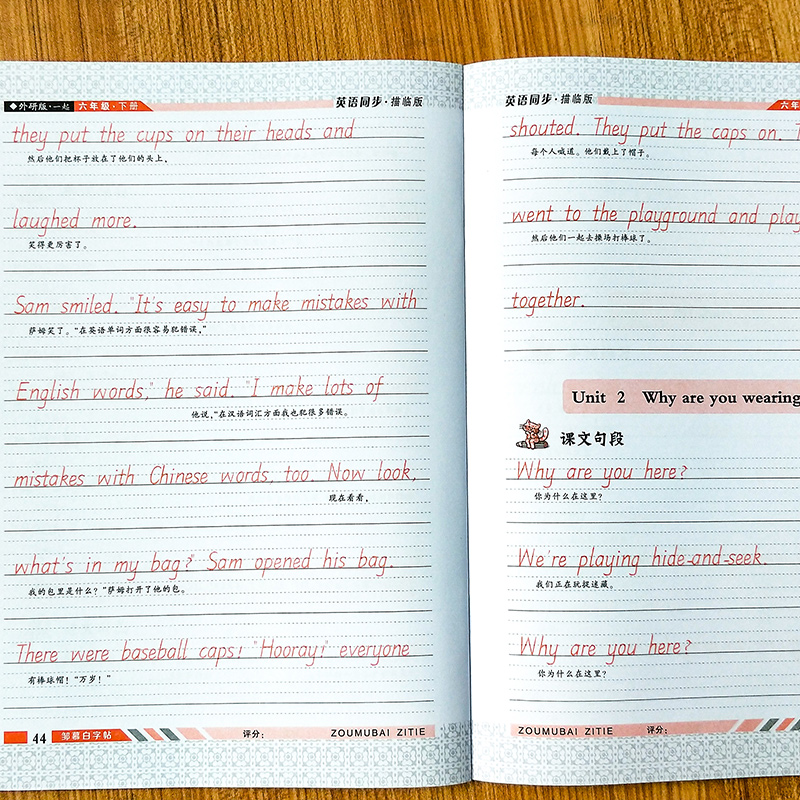 ◆外研版·一起 六年级·下册 英语同步·描临版
they put the cups on their heads and
然后他们把杯子放在了他们的头上,
laughed more.
笑得更厉害了。
Sam smiled. "It's easy to make mistakes with
萨姆笑了。"在英语单词方面很容易犯错误,"
English words," he said. "I make lots of
他说,"在汉语词汇方面我也犯很多错误。
mistakes with Chinese words, too. Now look,
现在看看,
what's in my bag?" Sam opened his bag.
我的包里是什么?"萨姆打开了他的包。
There were baseball caps! "Hooray!" everyone
有棒球帽!"万岁!"
44 邹慕白字帖 评分: ZOUMUBAI ZITIE
英语同步·描临版 六年
shouted. They put the caps on.
每个人喊道。他们戴上了帽子。
went to the playground and play
然后他们一起去操场打棒球了。
together.
Unit 2 Why are you wearing
课文句段
Why are you here?
你为什么在这里?
We're playing hide-and-seek.
我们正在玩捉迷藏。
Why are you here?
你为什么在这里?
ZOUMUBAI ZITIE 评分: